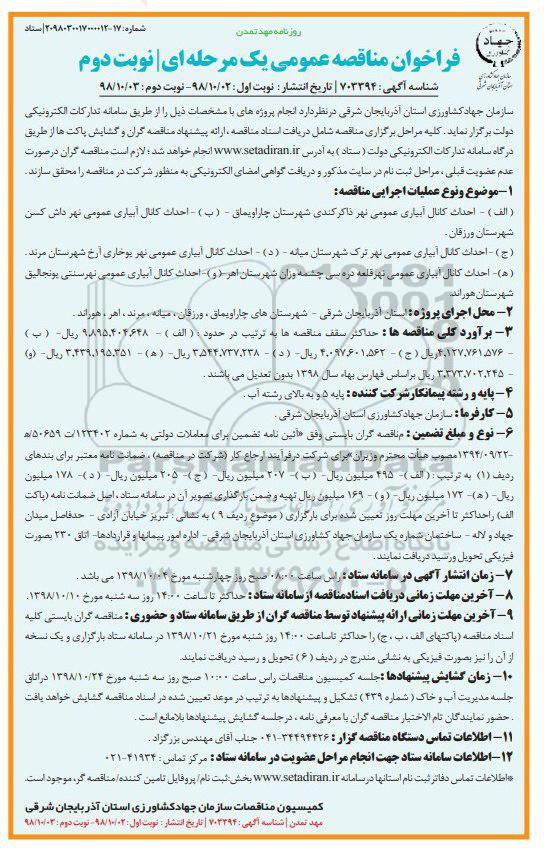 روزنامه مهد تمدن
شماره: ۱۷-۲۰۹۸۰۳۰۰۱۷۰۰۰۰۱۲ | ستاد
جهاد
سازمان جهاد کشاورزی
استان آذربایجان شرقی
فراخوان مناقصه عمومی یک مرحله ای | نوبت دوم
شناسه آگهی: ۷۰۳۳۹۴ | تاریخ انتشار : نوبت اول: ۹۸/۱۰/۰۲- نوبت دوم : ۹۸/۱۰/۰۳
سازمان جهادکشاورزی استان آذربایجان شرقی درنظردارد انجام پروژه های با مشخصات ذیل را از طریق سامانه تدارکات الکترونیکی
دولت برگزار نماید . کلیه مراحل برگزاری مناقصه شامل دریافت اسناد مناقصه ، ارائه پیشنهاد مناقصه گران و گشایش پاکت ها از طریق
درگاه سامانه تدارکات الکترونیکی دولت ( ستاد ) به آدرس www.setadiran.ir انجام خواهد شد ؛ لازم است مناقصه گران درصورت
عدم عضویت قبلی ، مراحل ثبت نام در سایت مذکور و دریافت گواهی امضای الکترونیکی به منظور شرکت در مناقصه را محقق سازند .
۱-موضوع ونوع عملیات اجرایی مناقصه :
( الف ) - احداث کانال آبیاری عمومی نهر ذاکرکندی شهرستان چاراویماق - ( ب ) - احداث کانال آبیاری عمومی نهر داش کسن
شهرستان ورزقان .
( ج ) - احداث کانال آبیاری عمومی نهر ترک شهرستان میانه - ( د ) - احداث کانال آبیاری عمومی نهر یوخاری آرخ شهرستان مرند .
( ه )- احداث کانال آبیاری عمومی نهرقلعه دره سی چشمه وزان شهرستان اهر- ( و )- احداث کانال آبیاری عمومی نهرسنتی یونجالیق
شهرستان هوراند.
۲- محل اجرای پروژه : استان آذربایجان شرقی - شهرستان های چاراویماق ، ورزقان ، میانه ، مرند ، اهر ، هوراند .
۳- برآورد کلی مناقصه ها : حداکثر سقف مناقصه ها به ترتیب در حدود : ( الف ) - ۹,۸۹۵,۴۰۴,۶۴۸ ریال- ( ب )
- ۴,۱۲۷,۷۶۱,۵۷۶ریال ( ج ) - ۴,۰۹۷,۶۰۱,۵۶۲ ریال- ( د ) - ۳,۵۴۴,۷۳۷,۲۳۸ ریال- ( ه ) - ۳,۴۳۹,۱۹۵,۳۵۱ ریال- ( و )
- ۳,۳۷۳,۷۰۲,۲۴۵ ریال براساس فهارس بهاء سال ۱۳۹۸ بدون تعدیل می باشند .
۴- پایه و رشته پیمانکارشرکت کننده : پایه ۵ و به بالای رشته آب .
۵- کارفرما : سازمان جهادکشاورزی استان آذربایجان شرقی .
۶- نوع و مبلغ تضمین : مناقصه گران بایستی وفق «آئین نامه تضمین برای معاملات دولتی به شماره ۱۲۳۴۰۲/ت ۵۰۶۵۹/ه
-۱۳۹۴/۰۹/۲۲ مصوب هیأت محترم وزیران»برای شرکت درفرآیند ارجاع کار (شرکت در مناقصه) ، ضمانت نامه معتبر برای بندهای
ردیف (۱) به ترتیب : ( الف ) - ۴۹۵ میلیون ریال- ( ب ) - ۲۰۷ میلیون ریال- ( ج )- ۲۰۵ میلیون ریال- ( د ) - ۱۷۸ میلیون
ریال- ( ه )- ۱۷۲ میلیون ریال- ( و ) - ۱۶۹ میلیون ریال تهیه و ضمن بارگذاری تصویر آن در سامانه ستاد ، اصل ضمانت نامه (پاکت
الف) راحداکثر تا آخرین مهلت روز تعیین شده برای بارگزاری ( موضوع ردیف ۹ ) به نشانی : تبریز خیابان آزادی - حدفاصل میدان
جهاد و لاله - ساختمان شماره یک سازمان جهاد کشاورزی استان آذربایجان شرقی- اداره امور پیمانها و قراردادها- اتاق ۲۳۰ بصورت
فیزیکی تحویل ورسید دریافت نمایند .
۷- زمان انتشار آگهی در سامانه ستاد : راس ساعت ۰۸:۰۰ صبح روز چهارشنبه مورخ ۱۳۹۸/۱۰/۰۴ می باشد .
۸- آخرین مهلت زمانی دریافت اسنادمناقصه ازسامانه ستاد : حداکثر تا ساعت ۱۴:۰۰ روز سه شنبه مورخ ۱۳۹۸/۱۰/۱۰.
۹- آخرین مهلت زمانی ارائه پیشنهاد توسط مناقصه گران از طریق سامانه ستاد و حضوری : مناقصه گران بایستی کلیه
اسناد مناقصه (پاکتهای الف ، ب ، ج) را حداکثر تاساعت ۱۴:۰۰ روز شنبه مورخ ۱۳۹۸/۱۰/۲۱ در سامانه ستاد بارگزاری و یک نسخه
از آن را نیز بصورت فیزیکی به نشانی مندرج در ردیف ( ۶ ) تحویل و رسید دریافت نمایند.
۱۰- زمان گشایش پیشنهادها : جلسه کمیسیون مناقصات راس ساعت ۱۰:۰۰ صبح روز سه شنبه مورخ ۱۳۹۸/۱۰/۲۴ دراتاق
جلسه مدیریت آب و خاک ( شماره ۴۳۹ ) تشکیل و پیشنهادها به ترتیب در موعد تعیین شده در اسناد مناقصه گشایش خواهد یافت
. حضور نمایندگان تام الاختیار مناقصه گران با معرفی نامه ، در جلسه گشایش پیشنهادها بلامانع است .
۱۱- اطلاعات تماس دستگاه مناقصه گزار : ۳۴۴۹۴۴۲۶-۰۴۱ جناب آقای مهندس بزرگزاد .
۱۲- اطلاعات سامانه ستاد جهت انجام مراحل عضویت در سامانه ستاد : مرکز تماس : ۴۱۹۳۴-۰۲۱
*اطلاعات تماس دفاتر ثبت نام استانها درسامانه www.setadiran.ir بخش:ثبت نام/ پروفایل تامین کننده/مناقصه گر،موجود است.
کمیسیون مناقصات سازمان جهادکشاورزی استان آذربایجان شرقی
مهد تمدن | شناسه آگهی: ۷۰۳۳۹۴ | تاریخ انتشار : نوبت اول: ۹۸/۱۰/۰۲- نوبت دوم : ۹۸/۱۰/۰۳
ParsNamadData